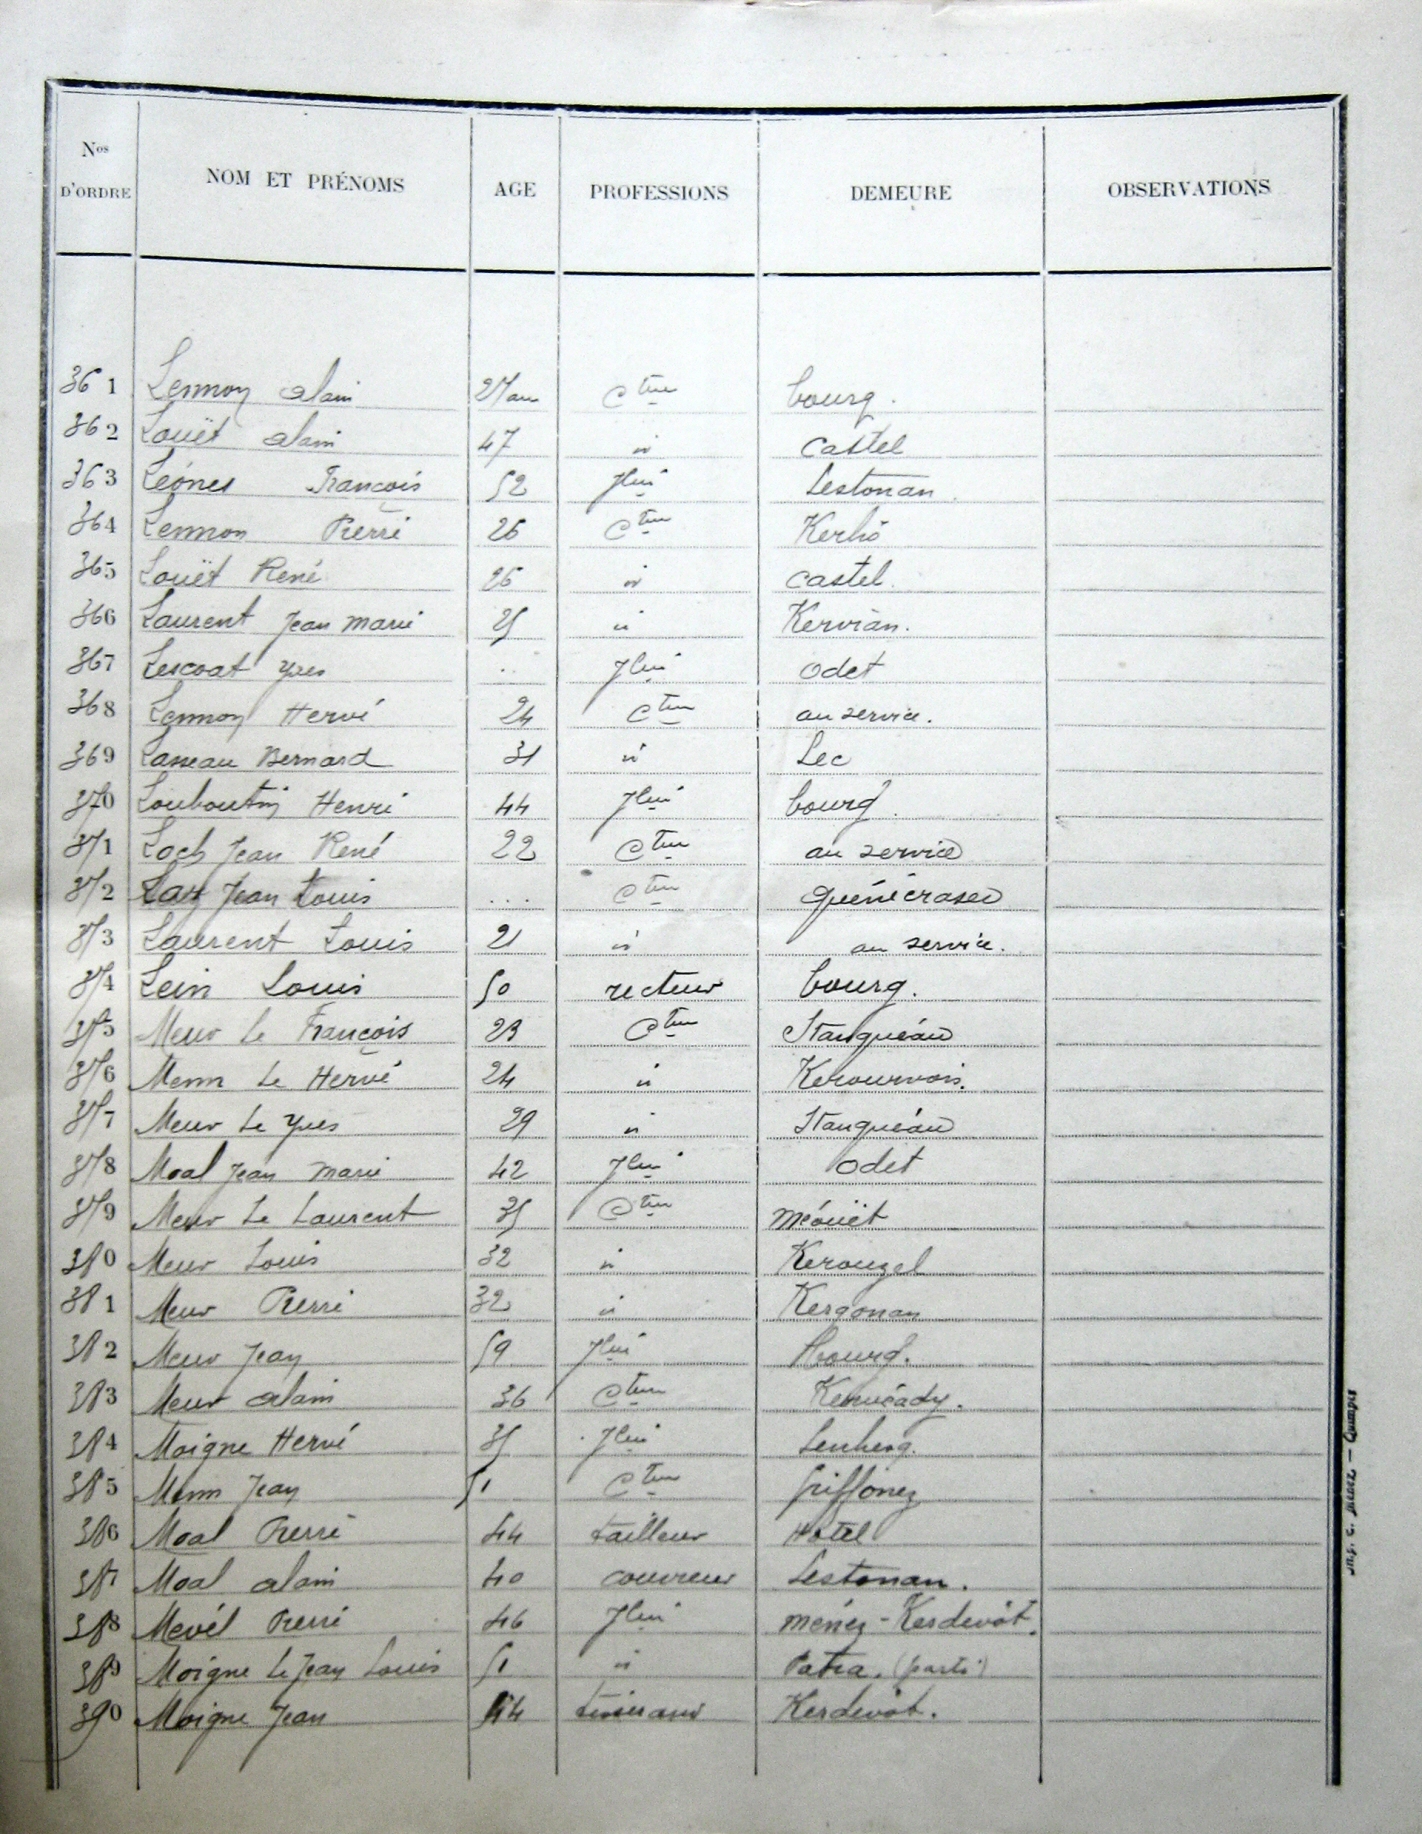 Nos D'ORDRE NOM ET PRÉNOMS AGE PROFESSIONS DEMEURE OBSERVATIONS
361 Lennon alain 27 ans Cteur bourg.
362 Louët alain 47 id castel
363 Léonel François 52 Jlier Lestonan.
364 Lennon Pierre 26 Cteur Kerhô
365 Louët René 26 id castel.
366 Laurent Jean Marie 25 id Kervian.
367 Lescoat Yves ... Jlier Odet
368 Lennon Hervé 24 Cteur au service.
369 Lasseau Bernard 31 id Lec
370 Louboutin Henri 44 Jlier bourg
371 Loch Jean René 22 Cteur au service
372 Jean Louis ... Cteur
373 Laurent Louis 21 id au service.
374 Lein Louis 50 recteur bourg.
375 Meur Le François 23 Cteur Stanquéau
376 Menn Le Hervé 24 id Kerourvois.
377 Meur Le Yves 29 id Stanquéau
378 Moal Jean Marie 42 Jlier Odet
379 Meur Le Laurent 35 Cteur Méouët
380 Meur Louis 32 id Kerouzel
381 Meur Pierre 32 id Kergonan
382 Meur Jean 59 Jlier bourg.
383 Meur alain 36 Cteur Kervéady.
384 Moigne Hervé 35 Jlier Lenherg.
385 Menn Jean 51 Cteur Griffonez
386 Moal Pierre 44 tailleur Hotel
387 Moal alain 40 couvreur Lestonan.
388 Mevél Pierre 46 Jlier Ménez-Kerdevôt.
389 Moigne Le Jean Louis 51 id Patra. (parti)
390 Moigne Jean 44 tisserand Kerdevôt.